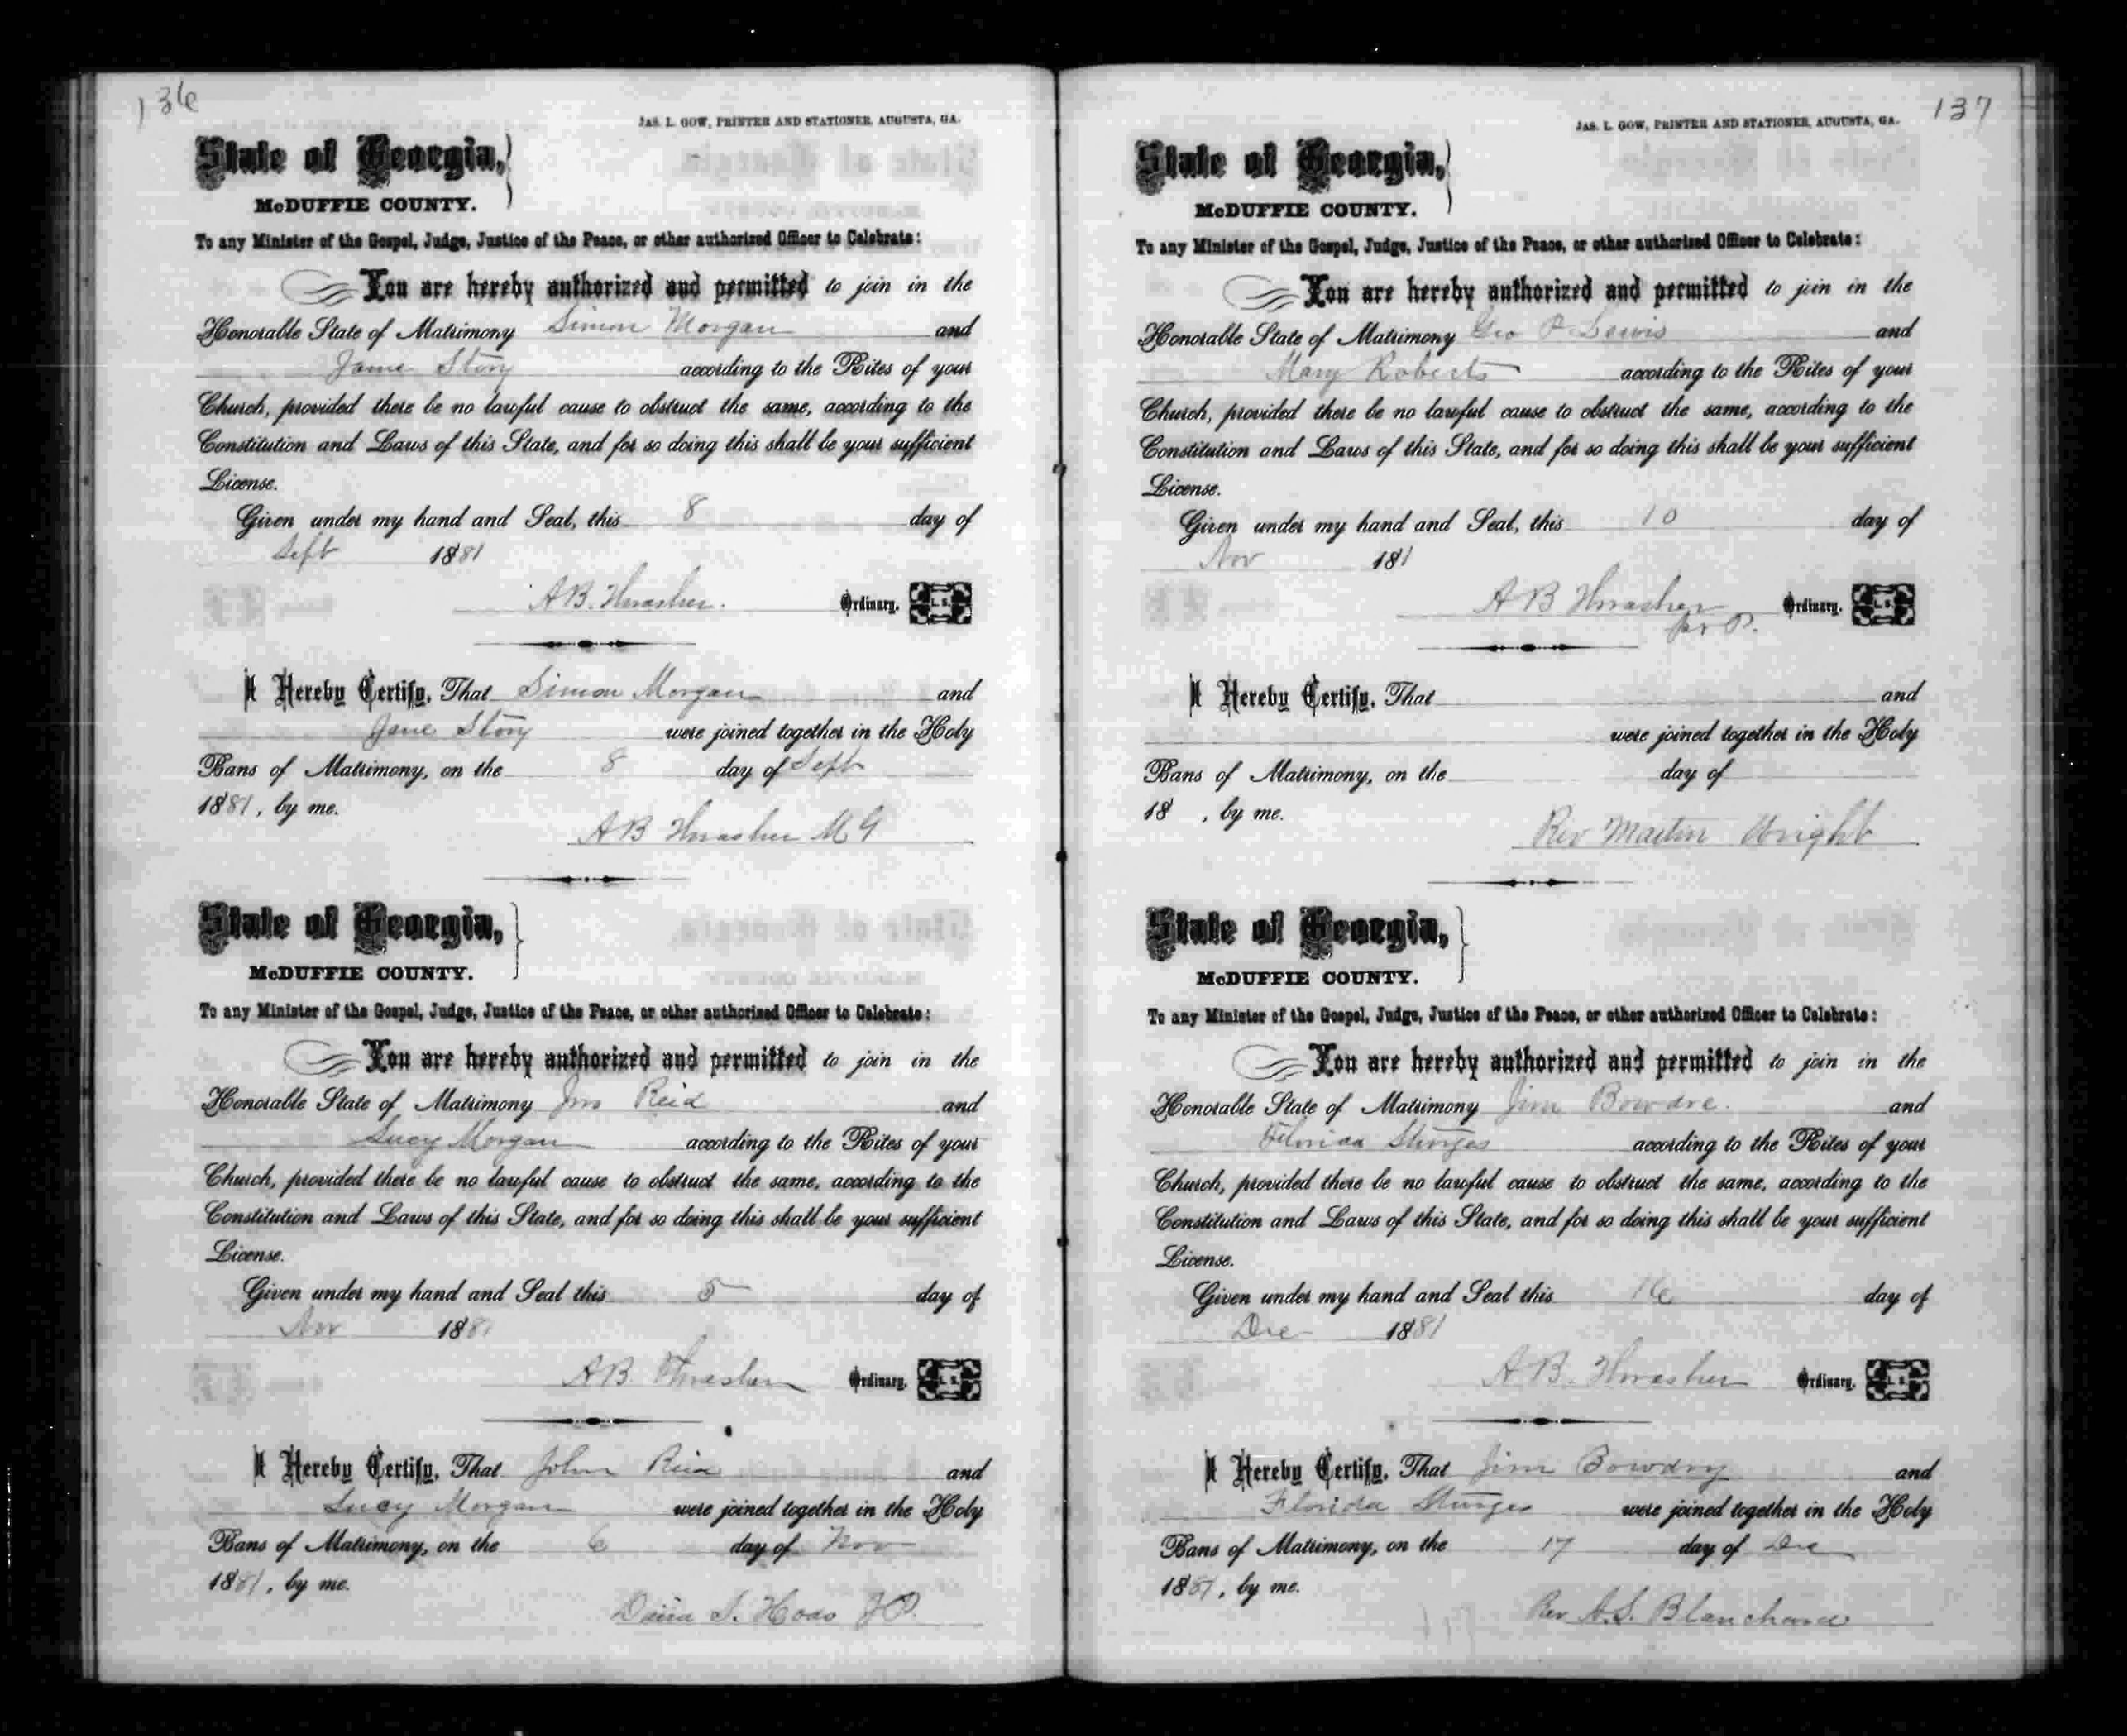 136
JAS. L. GOW, PRINTER AND STATIONER, AUGUSTA, GA.
State of Georgia,
McDUFFIE COUNTY.
To any Minister of the Gospel, Judge, Justice of the Peace, or other authorized Officer to Celebrate:
You are hereby authorized and permitted to join in the
Honorable State of Matrimony Simon Morgan and
Jane Story according to the Rites of your
Church, provided there be no lawful cause to obstruct the same, according to the
Constitution and Laws of this State, and for so doing this shall be your sufficient
License.
Given under my hand and Seal, this 8 day of
Sept 1881
A B. Thrasher. Ordinary. L. S.
I Hereby Certify, That Simon Morgan and
Jane Story were joined together in the Holy
Bans of Matrimony, on the 8 day of Sept
1881, by me.
A B Thrasher M G
State of Georgia,
McDUFFIE COUNTY.
To any Minister of the Gospel, Judge, Justice of the Peace, or other authorized Officer to Celebrate:
You are hereby authorized and permitted to join in the
Honorable State of Matrimony Jno Reid and
Lucy Morgan according to the Rites of your
Church, provided there be no lawful cause to obstruct the same, according to the
Constitution and Laws of this State, and for so doing this shall be your sufficient
License.
Given under my hand and Seal this 5 day of
Nov 1881
A B. Thrasher Ordinary. L. S.
I Hereby Certify, That John Reid and
Lucy Morgan were joined together in the Holy
Bans of Matrimony, on the 6 day of Nov
1881, by me.
S. J.P.
137
JAS. L. GOW, PRINTER AND STATIONER, AUGUSTA, GA.
State of Georgia,
McDUFFIE COUNTY.
To any Minister of the Gospel, Judge, Justice of the Peace, or other authorized Officer to Celebrate:
You are hereby authorized and permitted to join in the
Honorable State of Matrimony Geo P Lewis and
Mary Roberts according to the Rites of your
Church, provided there be no lawful cause to obstruct the same, according to the
Constitution and Laws of this State, and for so doing this shall be your sufficient
License.
Given under my hand and Seal, this 10 day of
Nov 181
A B Thrasher Ordinary. L. S.
pr P.
I Hereby Certify, That and
were joined together in the Holy
Bans of Matrimony, on the day of
18 , by me.
Rev Martin Wright
State of Georgia,
McDUFFIE COUNTY.
To any Minister of the Gospel, Judge, Justice of the Peace, or other authorized Officer to Celebrate:
You are hereby authorized and permitted to join in the
Honorable State of Matrimony Jim Bowdre. and
Florida Sturges according to the Rites of your
Church, provided there be no lawful cause to obstruct the same, according to the
Constitution and Laws of this State, and for so doing this shall be your sufficient
License.
Given under my hand and Seal this 16 day of
Dec 1881
A B. Thrasher Ordinary. L. S.
I Hereby Certify, That Jim Bowdry and
Florida Sturges were joined together in the Holy
Bans of Matrimony, on the 17 day of Dec
1881, by me.
Rev A.S. Blanchard